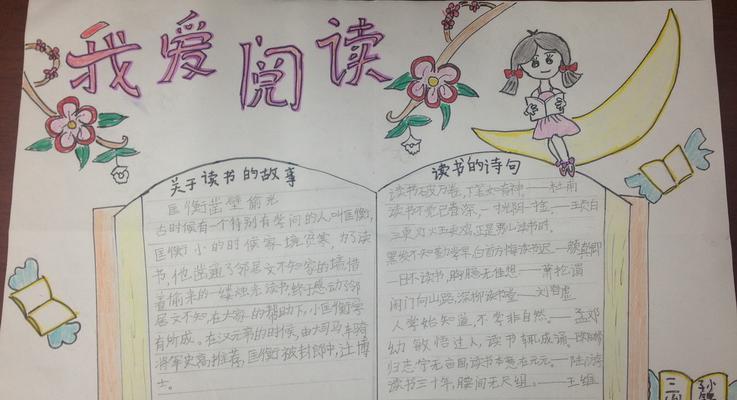 我爱阅读
关于读书的故事
匡衡凿壁偷光
古时候有一个特别有学问的人,叫匡衡,
匡衡小的时候家境贫寒,为了读
书,他凿通了邻居文不知家的墙,借
着偷来的一缕烛光读书,终于感动了邻
居文不知,在大家的帮助下,小匡衡学
有所成。在汉元帝的时候,由大司马、车骑
将军史高推荐,匡衡被封郎中,迁博
士。
读书的诗句
读书破万卷,下笔如有神——杜甫
读书不觉已春深,一寸光阴一寸金。——王贞白
三更灯火五更鸡,正是男儿读书时。
黑发不知勤学早,白首方悔读书迟——颜真卿
一日不读书,胸臆无佳想——萧抡谓
闭门向山路,深柳读书堂——刘昚虚
人学始知道,不学非自然。——孟郊
幼敏悟过人,读书辄成诵。
归志宁无五亩园,读书本意在元元。——陆游
读书三十年,腰间无尺组。——王维
三
孙